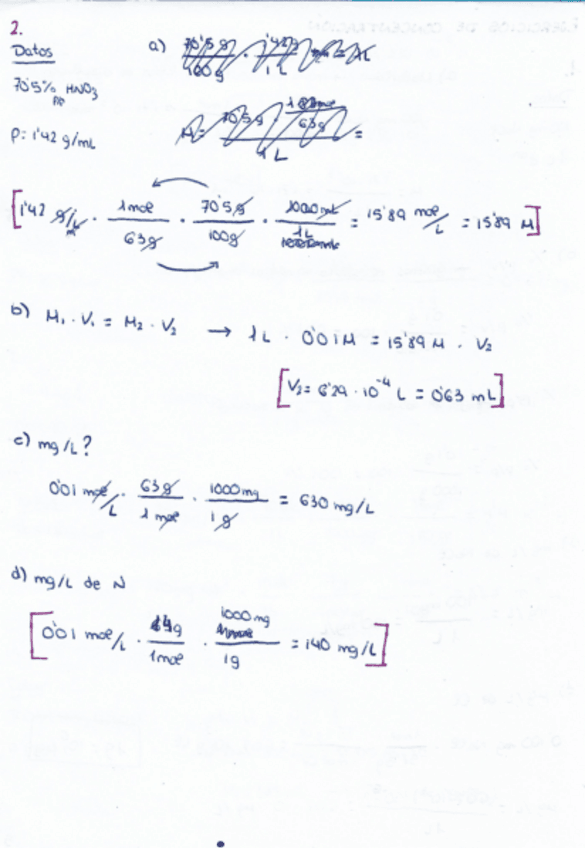 2.
Datos
70'5% HNO₃
PP
ρ: 1'42 g/mL
a)
[1'42 g/mL · 1 mol / 63 g · 70'5 g / 100 g · 1000 mL / 1 L = 15'89 mol/L = 15'89 M]
b) M₁ · V₁ = M₂ · V₂ → 1 L · 0'01 M = 15'89 M · V₂
[V₂ = 6'29 · 10⁻⁴ L = 0'63 mL]
c) mg/L?
0'01 mol/L · 63 g / 1 mol · 1000 mg / 1 g = 630 mg/L
d) mg/L de N
[0'01 mol/L · 14 g / 1 mol · 1000 mg / 1 g = 140 mg/L]